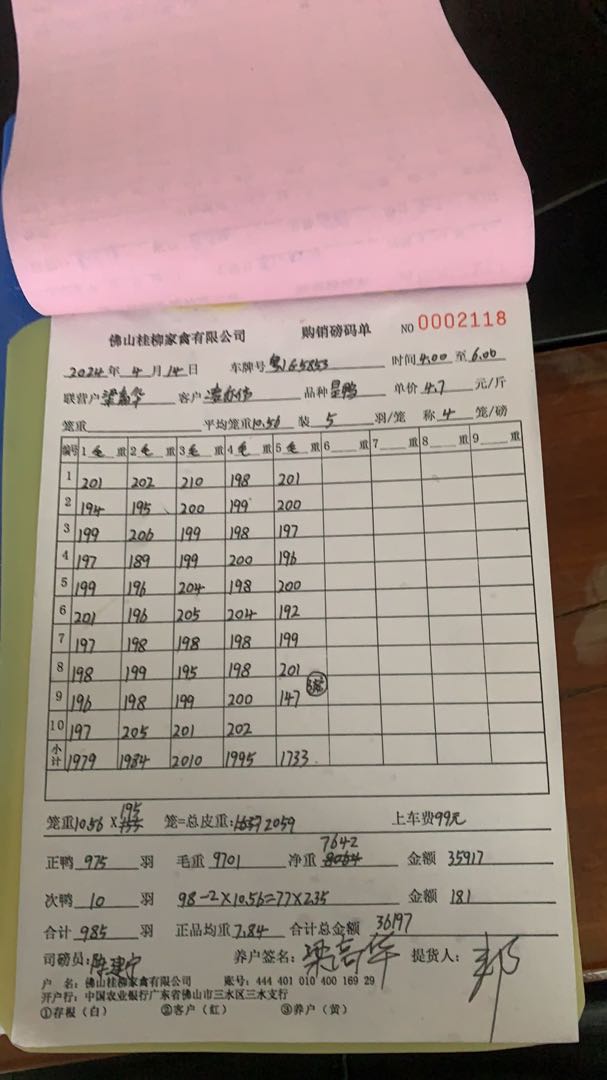 佛山桂柳家禽有限公司 购销磅码单 NO 0002118
2024年 4月 14日 车牌号 粤1G5853 时间 4:00 至 6:00
联营户 梁高华 客户 品种 单价 4.7 元/斤
笼重 平均笼重10.56 装 5 羽/笼 称 4 笼/磅
编号 1 毛 重 2 毛 重 3 毛 重 4 毛 重 5 毛 重 6 重 7 重 8 重 9 重
1 201 202 210 198 201
2 194 195 200 199 200
3 199 206 199 198 197
4 197 189 199 200 196
5 199 196 204 198 200
6 201 196 205 204 192
7 197 198 198 198 199
8 198 199 195 198 201
9 196 198 199 200 147 3笼
10 197 205 201 202
小计 1979 1984 2010 1995 1733
195
笼重10.56 X 155 笼=总皮重: 1637 2059 上车费99元
7642
正鸭 975 羽 毛重 9701 净重 8064 金额 35917
次鸭 10 羽 98-2X10.56=77X2.35 金额 181
合计 985 羽 正品均重 7.84 合计总金额 36197
司磅员: 陈建宁 养户签名: 梁高华 提货人: 邦
户 名: 佛山桂柳家禽有限公司 账号: 444 401 010 400 169 29
开户行: 中国农业银行广东省佛山市三水区三水支行
①存根（白） ②客户（红） ③养户（黄）